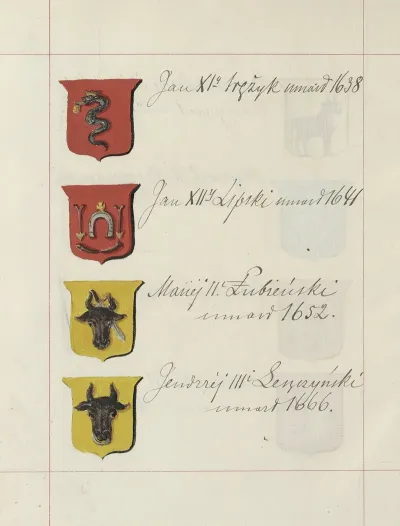 Jan XIgo Wężyk umarł 1638
Jan XIIsty Lipski umarł 1641
Maciéj IIi Łubieński
umarł 1652.
Jendrzéj IIIi Leszczyński
umarł 1666.